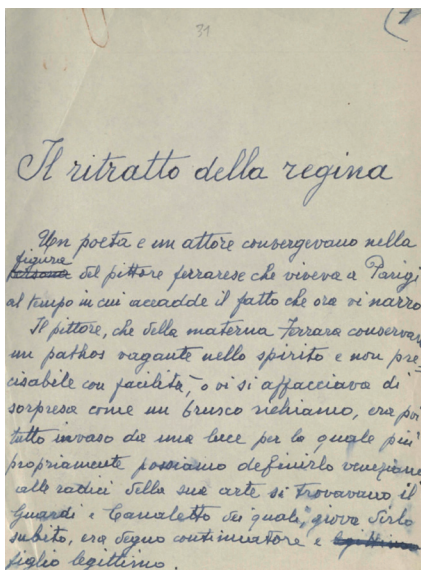 31
1
Il ritratto della regina
Un poeta e un attore convergevano nella
figura
persona del pittore ferrarese che viveva a Parigi
al tempo in cui accadde il fatto che ora vi narro
Il pittore, che della materna Ferrara conservava
un pathos vagante nello spirito e non pre-
cisabile con facilità, o vi si affacciava di
sorpresa come un brusco richiamo, era poi
tutto invaso da una luce per la quale più
propriamente possiamo definirlo veneziano
alle radici della sua arte si trovavano il
Guardi e Canaletto dei quali, giova dirlo
subito, era degno continuatore e legittimo
figlio legittimo.